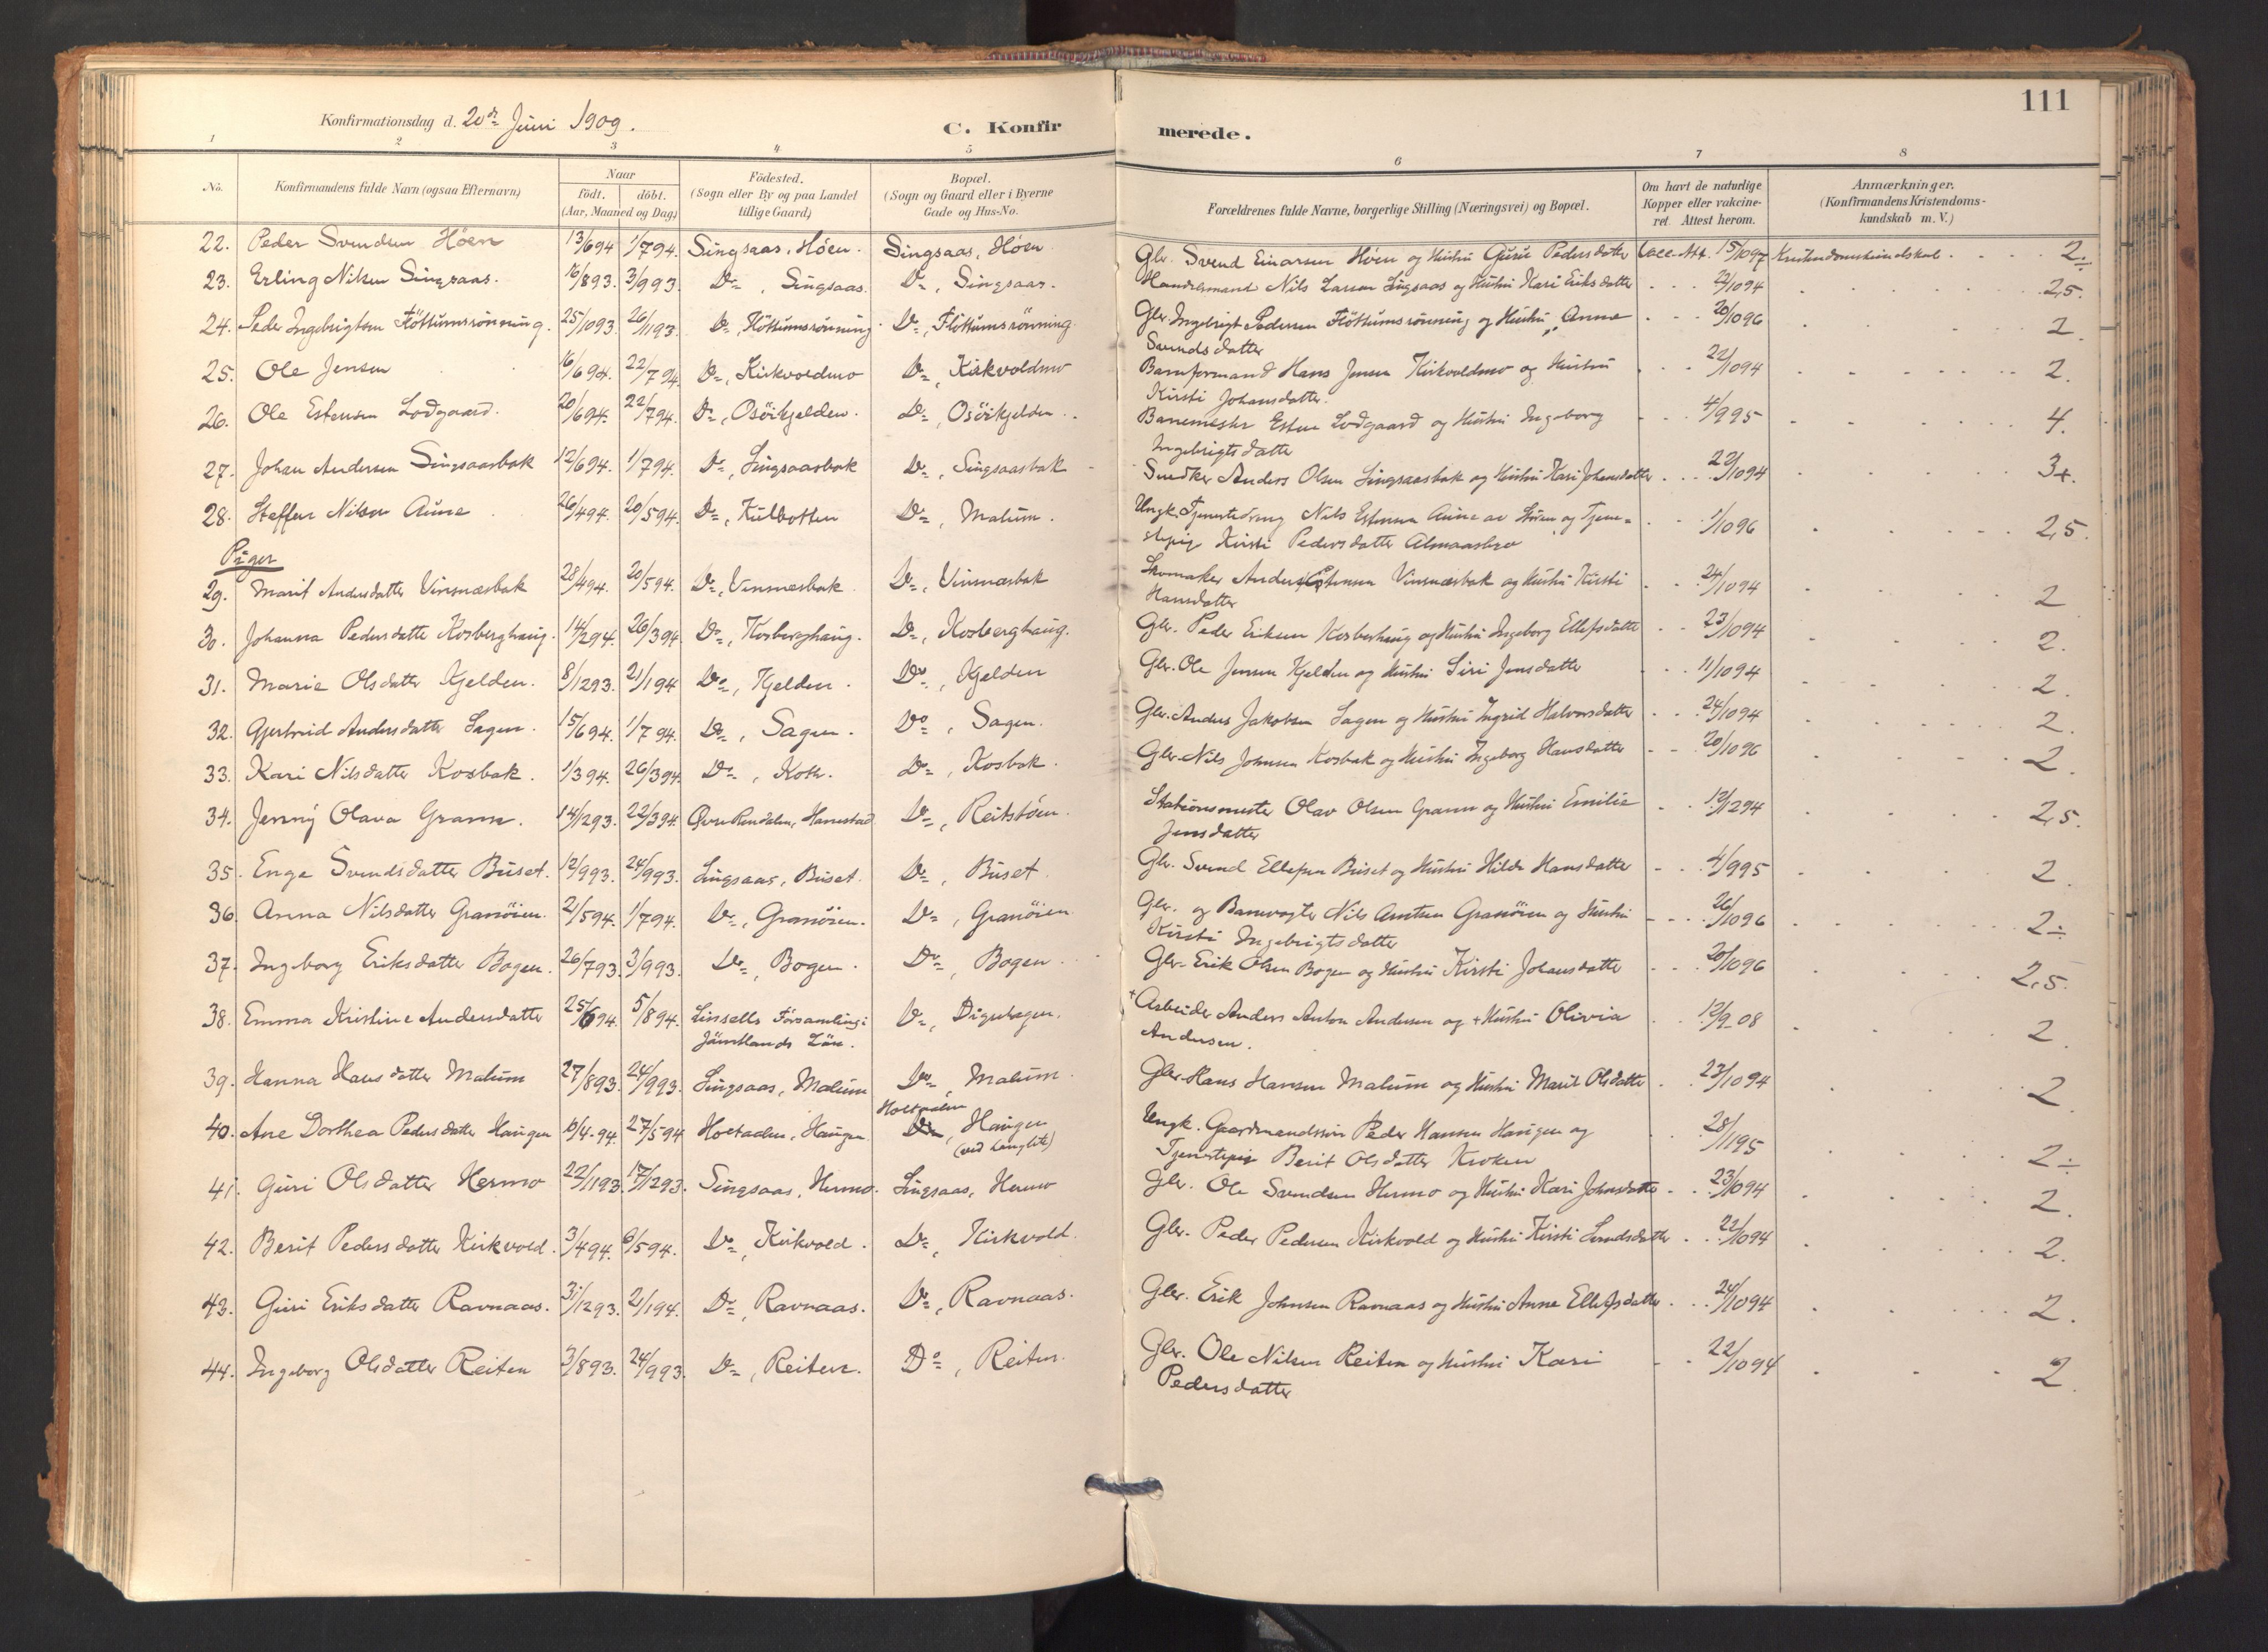 111
Konfirmationsdag d. 20de Juni 1909.
C. Konfirmerede.
1 2 3 4 5 6 7 8
No. Konfirmandens fulde Navn (ogsaa Efternavn) Naar födt. döbt. (Aar, Maaned og Dag) Födested. (Sogn eller By og paa Landet tillige Gaard) Bopæl. (Sogn og Gaard eller i Byerne Gade og Hus-No. Forældrenes fulde Navne, borgerlige Stilling (Næringsvei) og Bopæl. Om havt de naturlige Kopper eller vakcineret. Attest herom. Anmærkninger. (Konfirmandens Kristendomskundskab m. V.)
22. Peder Svendsen Höen 13/694 1/794. Singsaas, Höen. Singsaas, Höen Gbr. Svend Einarsen Höen og Hustru Guru Pedersdatter Vacc. Att. 15/1097 Kristendomskundskab. 2÷
23. Erling Nilsen Singsaas. 16/893. 3/993. Do, Singsaas. Do, Singsaas. Handelsmand Nils Larsen Singsaas og Hustru Kari Eriksdatter 23/1094 2,5.
24. Peder Ingebrigtsen Flöttumsrönning. 25/1093. 26/1193. Do, Flöttumsrönning. Do, Flöttumsrönning. Gbr. Ingebrigt Pedersen Flöttumsrönning og Hustru Anne 20/1096 2.
Svendsdatter
25. Ole Jensen 16/694. 22/794. Do, Kirkvoldmo Do, Kirkvoldmo Baneformand Hans Jensen Kirkvoldmo og Hustru 22/1094 2.
Kirsti Johansdatter.
26. Ole Estensen Lodgaard. 20/694. 22/794. Do, Osörkjelden. Do, Osörkjelden. Banemester Esten Lodgaard og Hustru Ingeborg 4/995 4.
Ingebrigtsdatter
27. Johan Andersen Singsaasbak 12/694. 1/794. Do, Singsaasbak Do, Singsaasbak Snedker Anders Olsen Singsaasbak og Hustru Kari Johansdatter 22/1094 3+.
28. Steffen Nilsen Aune 26/494. 20/594. Do, Kulbotten Do, Malum. Ungk. Tjenestedreng Nils Estensen Aune av Stören og Tjene=
stepige Kirsti Pedersdatter Almaasbro 1/1096 2,5.
Piger
29. Marit Andersdatter Vinsnesbak 28/494. 20/594. Do, Vinsnesbak Do, Vinsnesbak Skomaker Anders Estensen Vinsnæsbak og Hustru Kirsti 24/1094 2
Hansdatter
30. Johanna Pedersdatter Kosberghaug. 14/294. 26/394. Do, Kosberghaug. Do, Kosberghaug. Gbr. Peder Eriksen Kosberhaug og Hustru Ingeborg Ellefsdatter 23/1094 2.
31. Marie Olsdatter Kjelden. 8/1293. 21/194 Do, Kjelden. Do, Kjelden Gbr. Ole Jensen Kjelden og Hustru Siri Jensdatter 11/1094 2.
32. Gjertrud Andersdatter Sagen. 15/694. 1/794. Do, Sagen. Do, Sagen. Gbr. Anders Jakobsen Sagen og Hustru Ingrid Halvorsdatter 24/1094 2.
33. Kari Nilsdatter Kosbak. 1/394. 26/394. Do, Koth. Do, Kosbak. Gbr. Nils Johnsen Kosbak og Hustru Ingeborg Hansdatter 20/1096 2.
34. Jenny Olava Gramm. 14/1293. 22/394. Övre Rendalen, Hanestad Do, Reitstöen. Stationsmester Olav Olsen Gramm og Hustru Emilie 12/1294 2,5.
Jensdatter
35. Enge Svendsdatter Buset. 12/993. 24/993. Singsaas, Buset. Do, Buset. Gbr. Svend Ellefsen Buset og Hustru Hilde Hansdatter 4/995 2.
36. Anna Nilsdatter Granöien. 21/594. 1/794. Do, Granöien. Do, Granöien Gbr. og Banevogter Nils Arntsen Granöien og Hustru 26/1096 2÷
Kirsti Ingebrigtsdatter
37. Ingeborg Eriksdatter Bogen. 26/793. 3/993. Do, Bogen. Do, Bogen. Gbr. Erik Olsen Bogen og Hustru Kirsti Johansdatter 20/1096 2,5.
38. Emma Kristine Andersdatter 25/694. 5/894. Linsells Församling i Do, Digerhagen. +Arbeider Anders Anton Andersen og +Hustru Olivia 12/9 08 2.
Jämtlands Län. Andersen.
39. Hanna Hansdatter Malum 27/893. 24/993. Singsaas, Malum Do, Malum. Gbr. Hans Hansen Malum og Hustru Marit Olsdatter 23/1094 2.
40. Ane Dorthea Pedersdatter Haugen 6/4.94. 27/594 Holtaalen, Haugen Holtaalen Do, Haugen Ungk. Gaardmandssön Peder Hansen Haugen og 28/1195 2÷
(ved Langlete) Tjenestepige Berit Olsdatter Kroken
41. Guri Olsdatter Hermo 22/1193. 17/1293. Singsaas, Hermo. Singsaas, Hermo Gbr. Ole Svendsen Hermo og Hustru Kari Johnsdatter 23/1094 2.
42. Berit Pedersdatter Kirkvold. 3/494. 6/594. Do, Kirkvold. Do, Kirkvold. Gbr. Peder Pedersen Kirkvold og Hustru Kirsti Svendsdatter 22/1094 2.
43. Guri Eriksdatter Ravnaas. 31/1293. 21/194. Do, Ravnaas. Do, Ravnaas. Gbr. Erik Johnsen Ravnaas og Hustru Anne Ellefsdatter 24/1094 2.
44. Ingeborg Olsdatter Reiten 3/893. 24/993. Do, Reiten. Do, Reiten. Gbr. Ole Nilsen Reiten og Hustru Kari 22/1094 2.
Pedersdatter